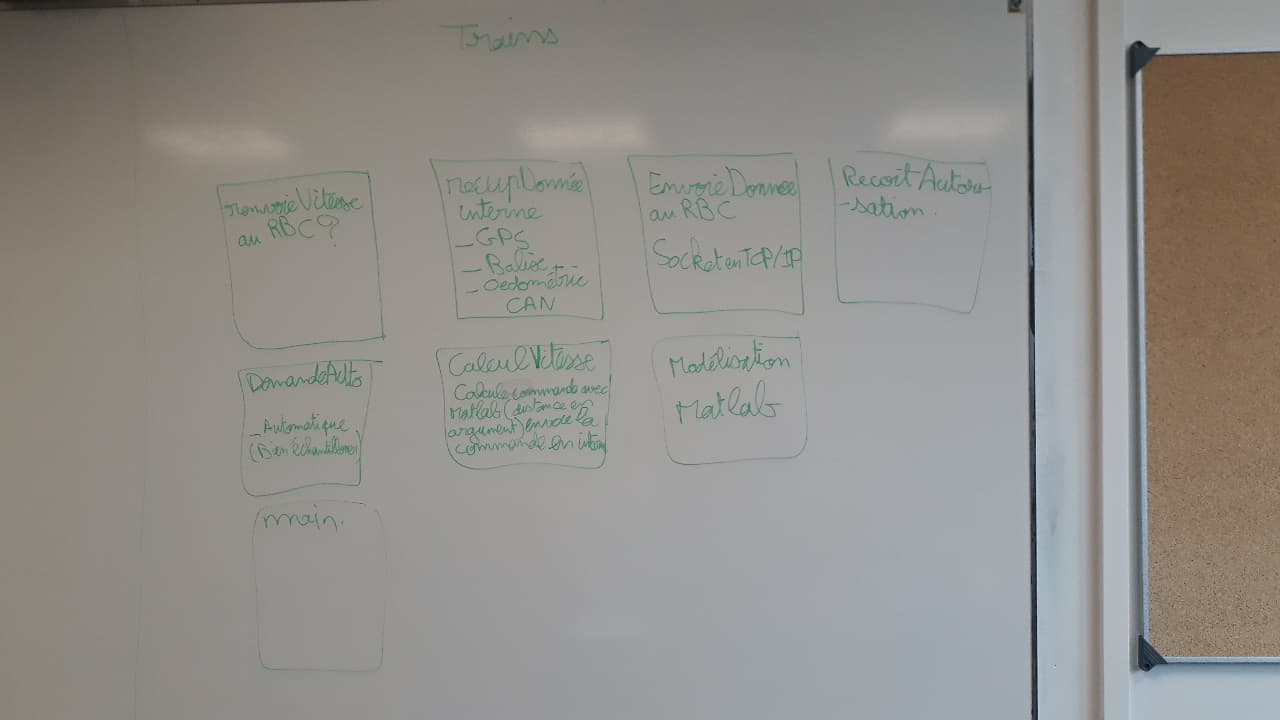 Trains
renvoie Vitesse
au RBC ?
recupDonnée
interne
_ GPS
_ Balise
_ Oedométrie
CAN
Envoie Donnee
au RBC
Socket en TCP/IP
Recoit Autori-
-sation.
DemandeAuto
_ Automatique
(Bien échantilloner)
CalculVitesse
Calcule commande avec
Matlab (distance en
argument) envoie la
commande en interne
Modélisation
Matlab
main.